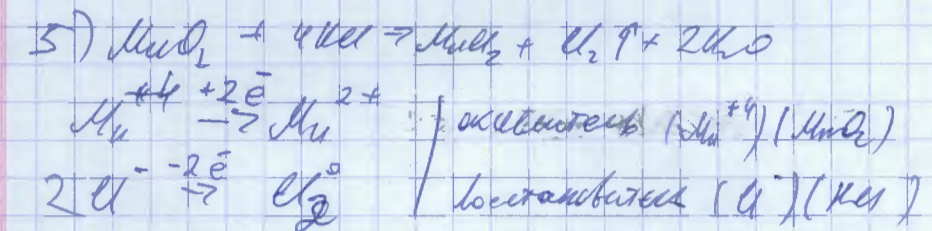 5) MnO₂ + 4HCl → MnCl₂ + Cl₂ ↑ + 2H₂O
Mn⁺⁴ +2ē → Mn²⁺ | окислитель (Mn⁺⁴) (MnO₂)
2Cl⁻ -2ē → Cl₂⁰ | восстановитель (Cl⁻) (HCl)